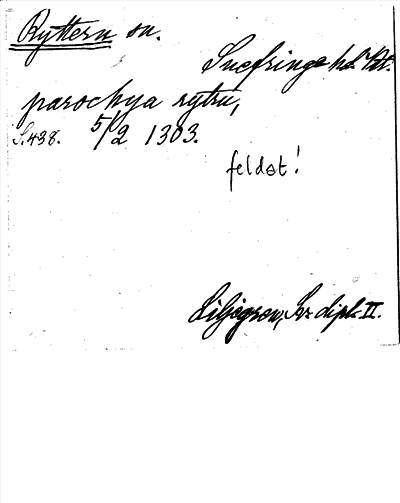 Ryttern sn.
Snefringe hd. Vst.
parochya rytru,
S. 438. 5/2 1303.
feldat!
Liljegren, Sv. dipl. II.